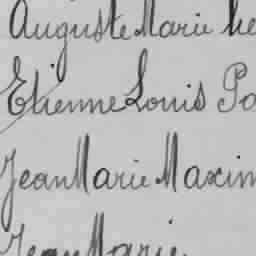 Auguste Marie
Etienne Louis
Jean Marie Maxim
Jean Marie